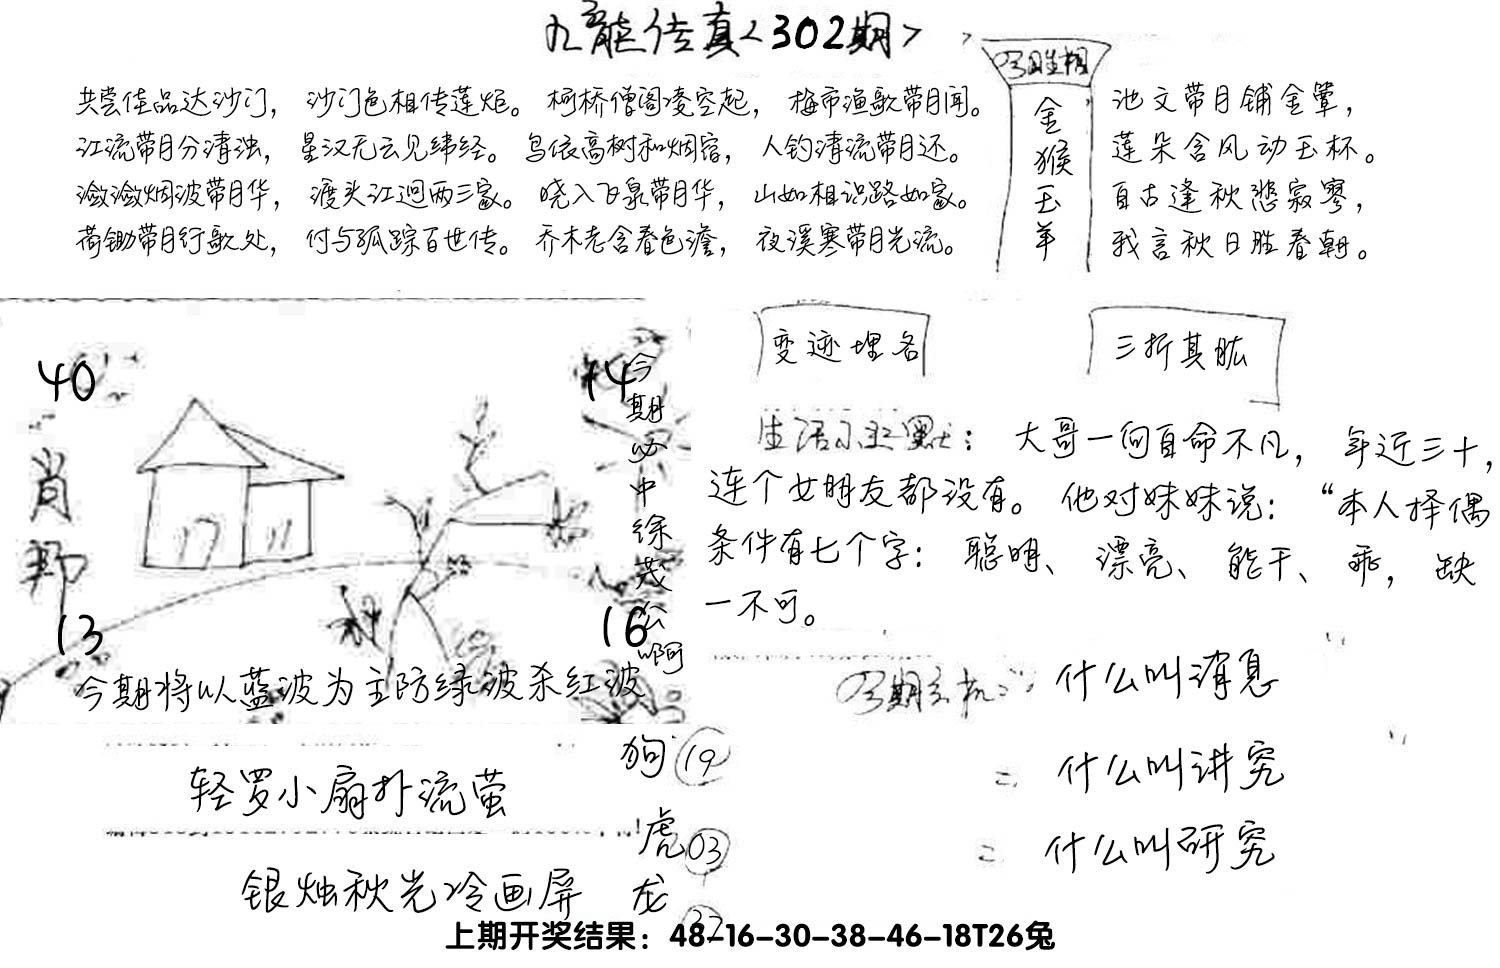 九龙传真<302期>
共尝佳品达沙门， 沙门色相传莲炬。 柯桥僧阁凌空起， 梅市渔歌带月闻。
江流带月分清浊， 星汉无云见纬经。 鸟依高树和烟宿， 人钓清流带月还。
潋潋烟波带月华， 渡头江迥两三家。 晓入飞泉带月华， 山如相识路如家。
荷锄带月行歌处， 付与孤踪百世传。 乔木老含春色澹， 夜溪寒带月光流。
金猴玉羊
池文带月铺金簟，
莲朵含风动玉杯。
自古逢秋悲寂寥，
我言秋日胜春朝。
40
14
肖
13
16
今期必中徐茂公啊
今期将以蓝波为主防绿波杀红波
变迹埋名
三折其肱
生活小幽默： 大哥一向自命不凡， 年近三十，
连个女朋友都没有。 他对妹妹说：“本人择偶
条件有七个字： 聪明、 漂亮、 能干、 乖， 缺
一不可。
什么叫消息
= 什么叫讲究
= 什么叫研究
轻罗小扇扑流萤
银烛秋光冷画屏
狗 19
虎 03
龙
上期开奖结果：48-16-30-38-46-18T26兔